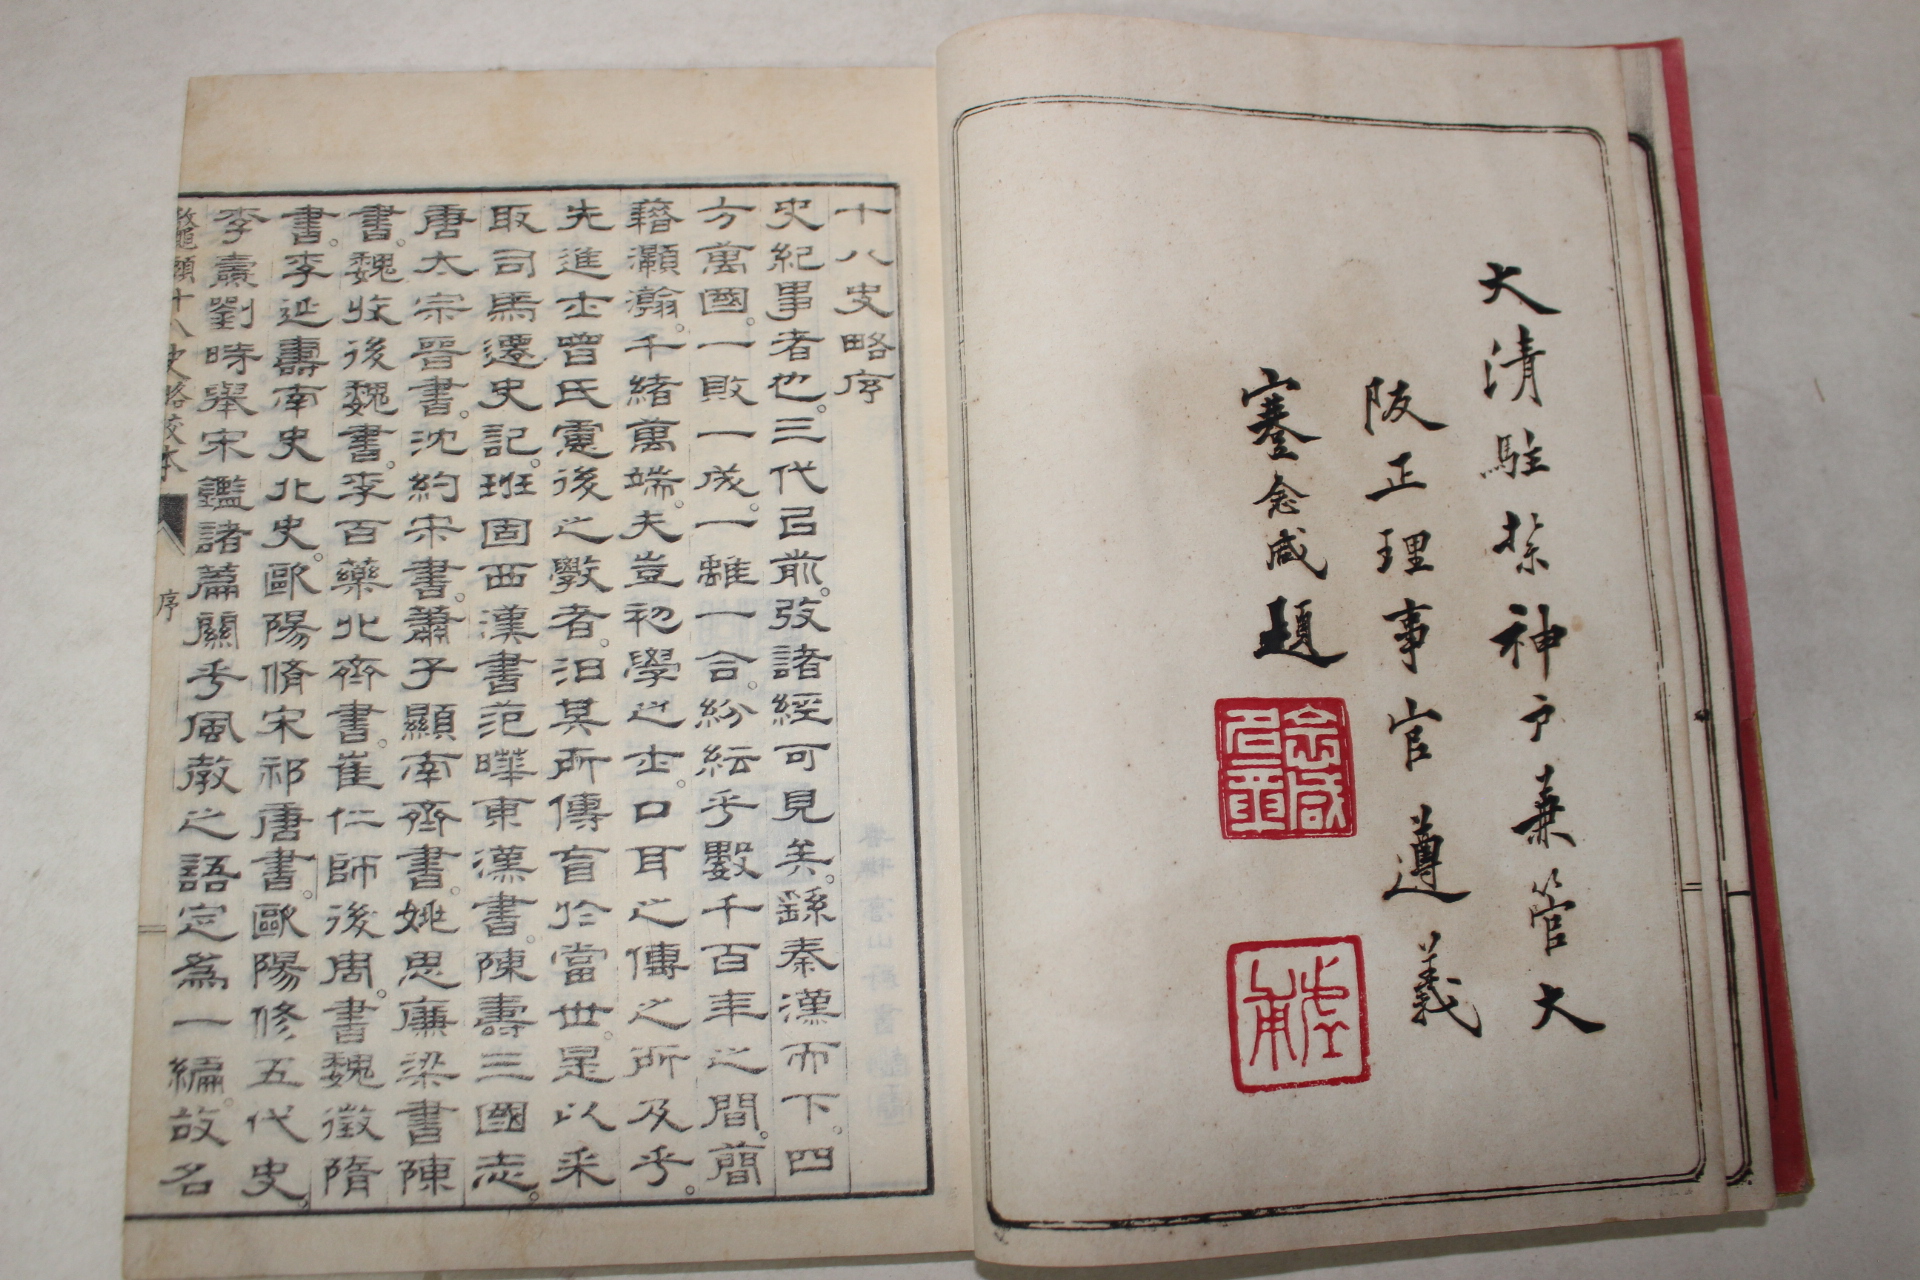 大清駐紮神戶兼管大
阪正理事官遵義
蹇念咸題
念咸
名章
虛甫
十八史略序
史紀事者也。三代㠯前。攷諸經可見矣。繇秦漢而下。四
方萬國。一敗一成。一離一合。紛紜乎數千百年之間。簡
籍灝瀚。千緒萬端。夫豈初學之士。口耳之傳之所及乎。
先進士曾氏憲後之斆者。汨其所傳盲於當世。是以采
取司馬遷史記。班固西漢書范曄東漢書。陳壽三國志。
唐太宗晉書。沈約宋書。蕭子顯南齊書。姚思廉梁書陳
書。魏收後魏書。李百藥北齊書。崔仁師後周。書魏徵隋
書。李延壽南史北史。歐陽脩宋祁唐書。歐陽修五代史。
李燾劉時舉宋鑑諸篇關乎風教之語定為一編。故名
鼇頭十八史略校本 序